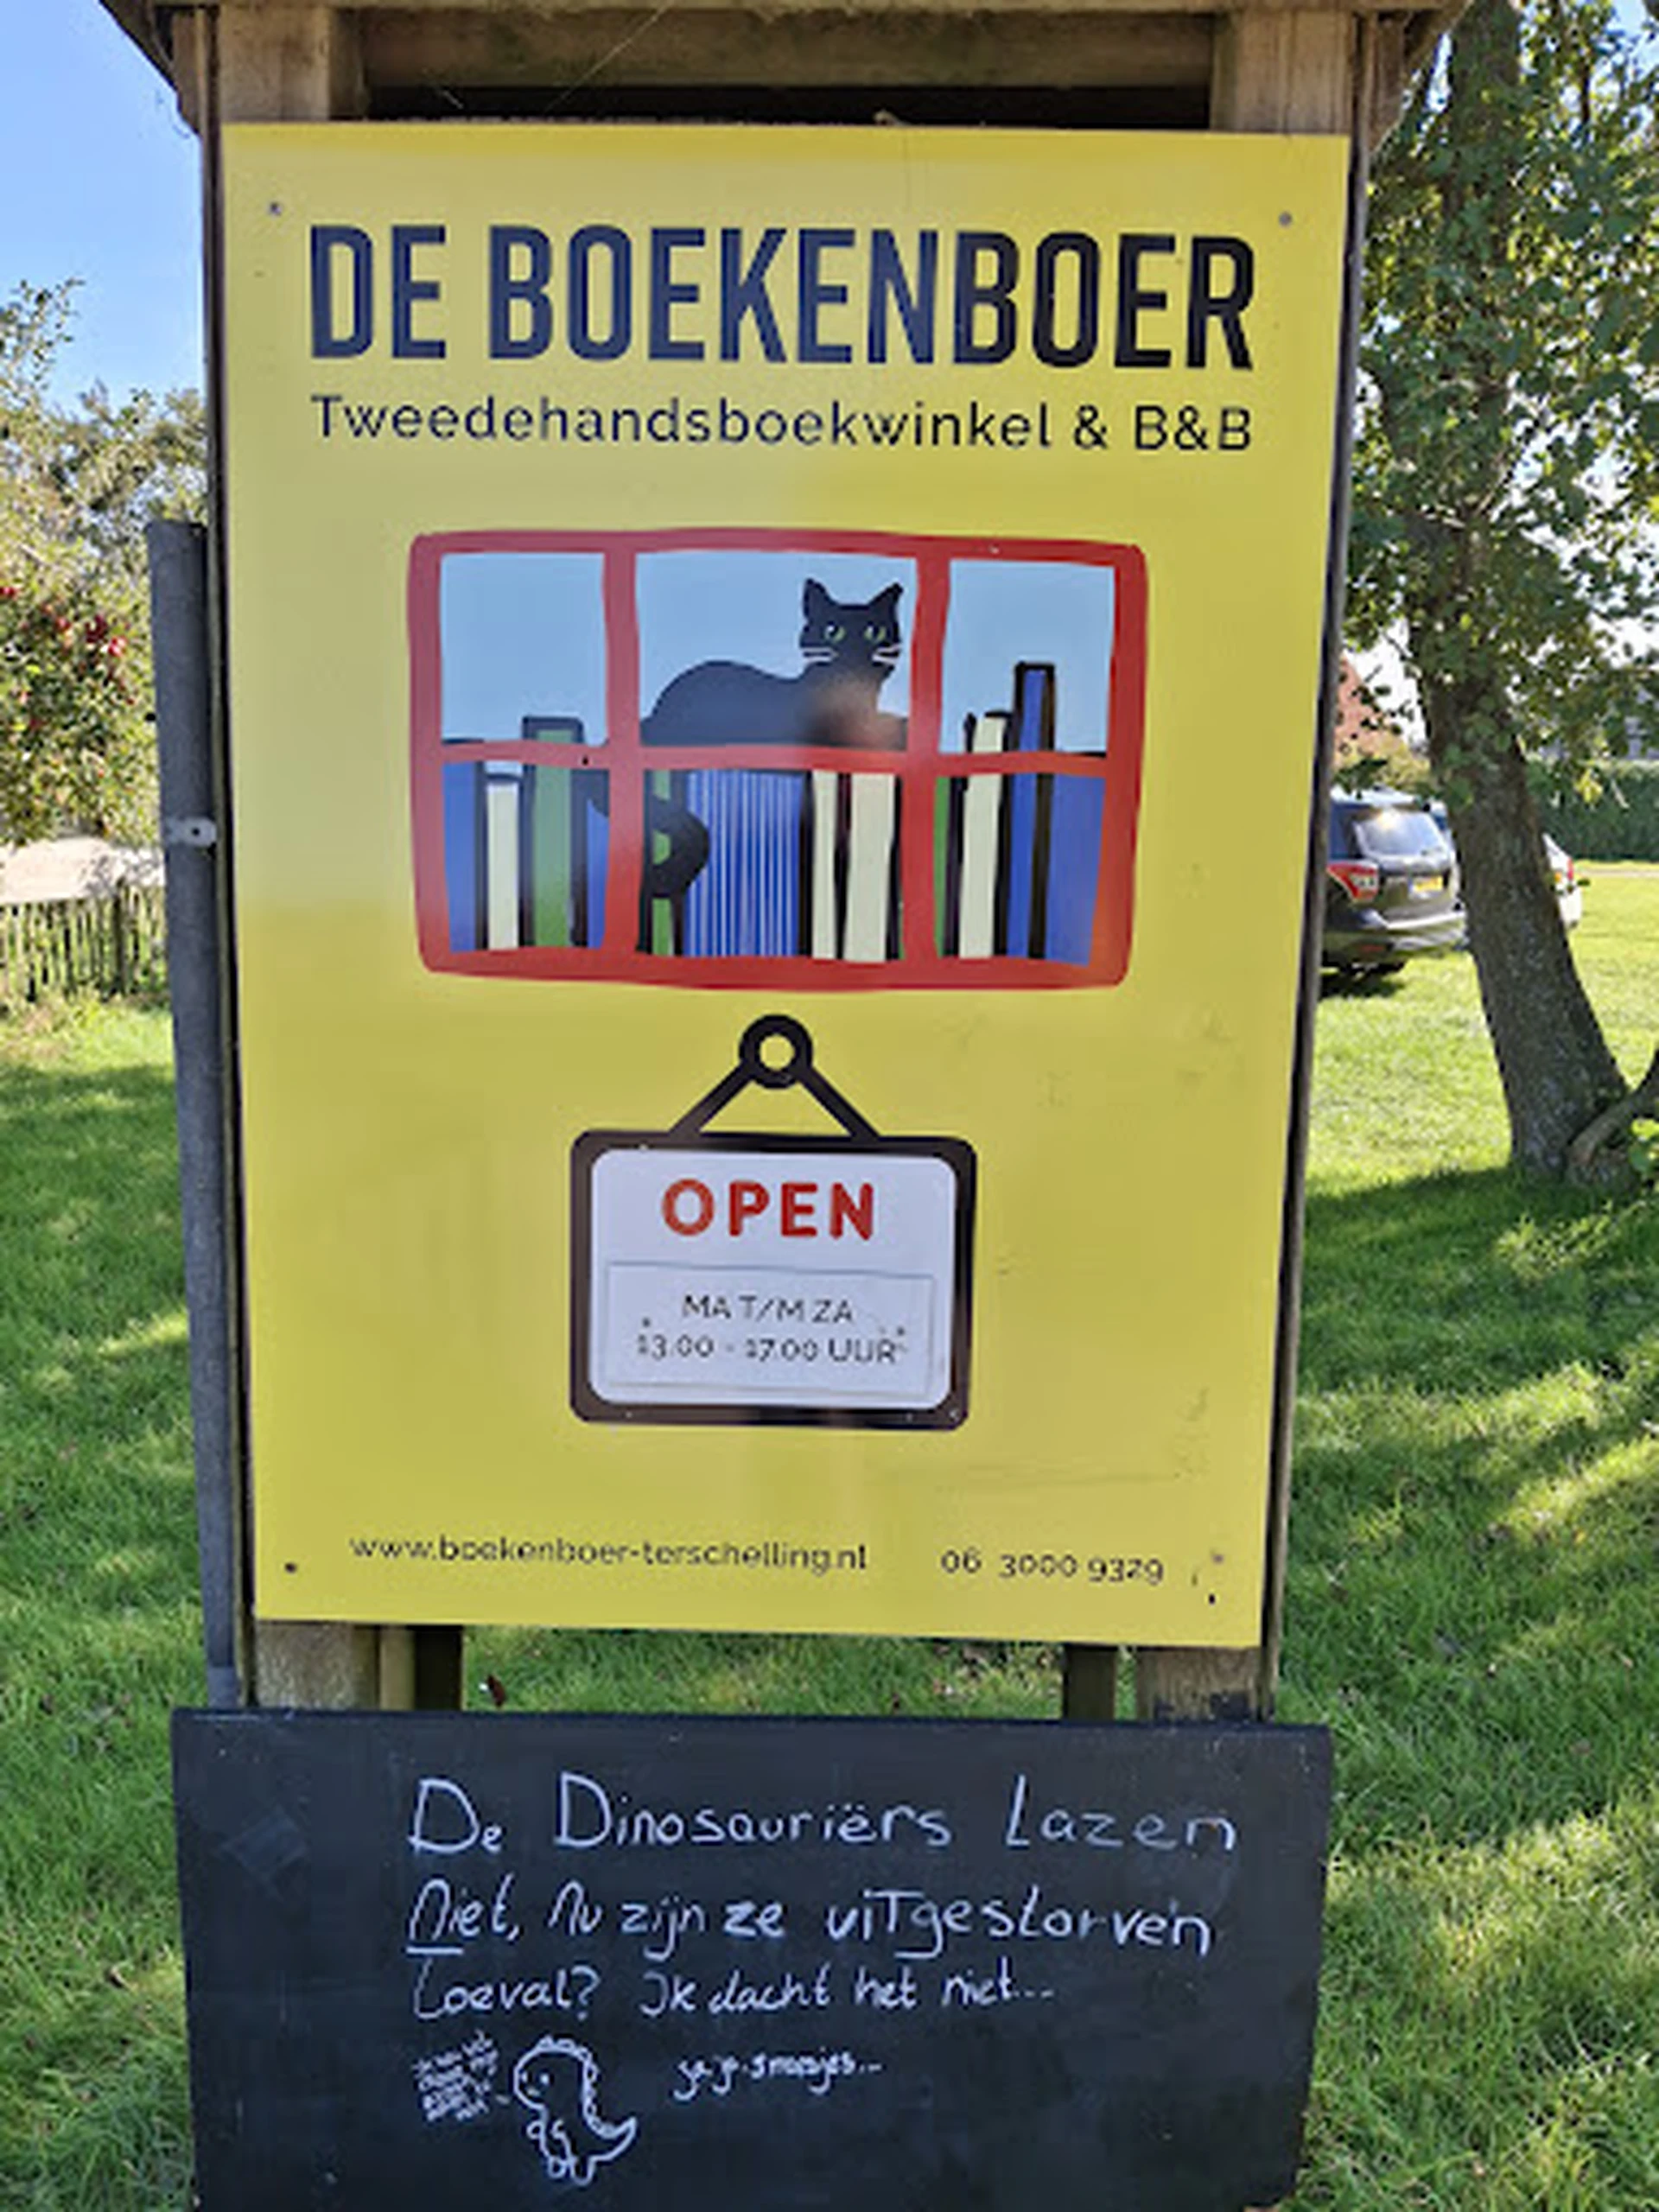 DE BOEKENBOER
Tweedehandsboekwinkel & B&B
OPEN
MA T/M ZA
13.00 - 17.00 UUR
www.boekenboer-terschelling.nl 06 3000 9329
De Dinosauriërs Lazen
Niet, Nu zijn ze uitgestorven
Toeval? Ik dacht het niet...